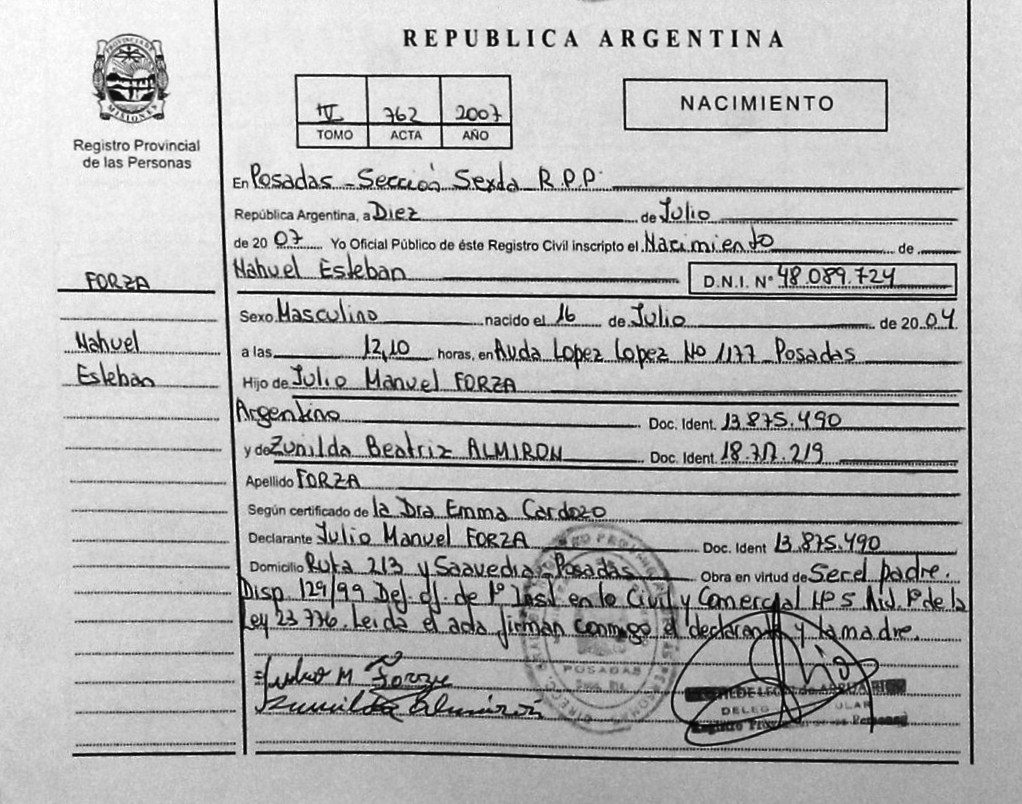 PROVINCIA DE MISIONES
Registro Provincial
de las Personas
REPUBLICA ARGENTINA
IV 762 2007
TOMO ACTA AÑO
NACIMIENTO
En Posadas - Sección Sexta R.P.P.
República Argentina, a Diez de Julio
de 2007 Yo Oficial Público de éste Registro Civil inscripto el Nacimiento de
Nahuel Esteban D.N.I. Nº 48.089.724
FORZA
Nahuel
Esteban
Sexo Masculino nacido el 16 de Julio de 2004
a las 12,10 horas, en Avda Lopez Lopez Nº 1177 Posadas
Hijo de Julio Manuel FORZA
Argentino Doc. Ident. 13.875.490
y de Zunilda Beatriz ALMIRON Doc. Ident. 18.717.219
Apellido FORZA
Según certificado de la Dra Emma Cardozo
Declarante Julio Manuel FORZA Doc. Ident 13.875.490
Domicilio Ruta 213 y Saavedra - Posadas Obra en virtud de Ser el padre.
Disp 129/99 de 1º Inst en lo Civil y Comercial Nº 5 de la
Ley 23.776. Leida el acta firman conmigo el declarante y la madre.
Julio M Forza
Zunilda Almirón
POSADAS
DELEG ULAR
Registro Provincial de las Personas